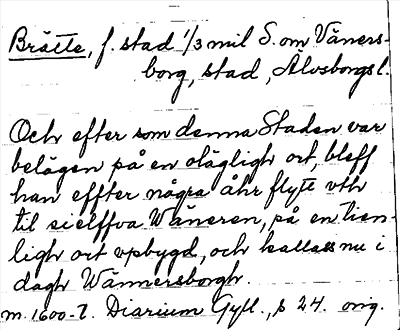 Brätte, f. stad 1/3 mil S. om Väners-
borg, stad, Älvsborgs l.
Och efter som denna Staden var
belägen på en olägligh ort, bleff
han effter några åhr flytt vth
til sielffva Wäneren, på en tien-
ligh ort vpbygd, och kallass nu i
dagh Wännersborgh.
m. 1600-t. Diarium Gyll., s 24. orig.